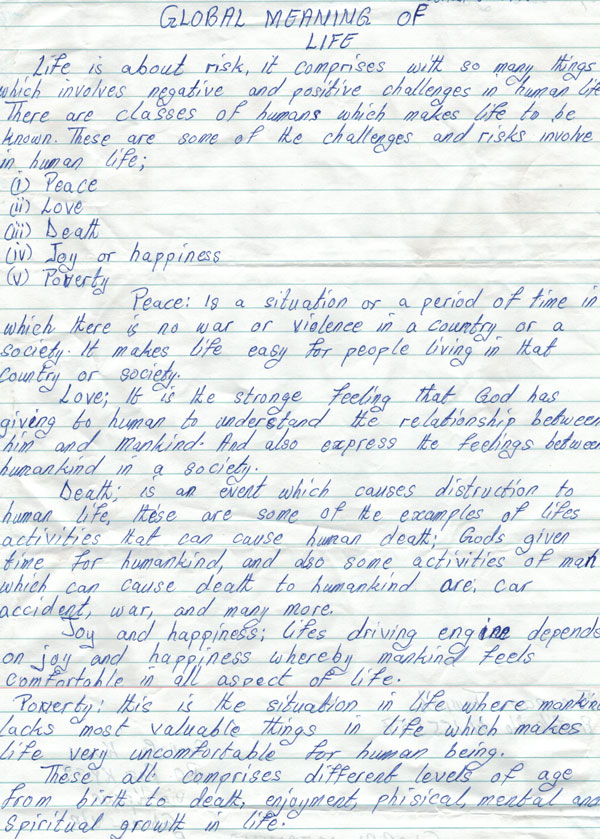 GLOBAL MEANING OF
LIFE
Life is about risk, it comprises with so many things
which involves negative and positive challenges in human life
There are classes of humans which makes life to be
known. These are some of the challenges and risks involve
in human life;
(i) Peace
(ii) Love
(iii) Death
(iv) Joy or happiness
(v) Poverty
Peace: Is a situation or a period of time in
which there is no war or violence in a country or a
society. It makes life easy for people living in that
country or society.
Love; It is the stronge feeling that God has
giving to human to understand the relationship between
him and mankind. And also express the feelings between
humankind in a society.
Death; is an event which causes distruction to
human life, these are some of the examples of lifes
activities that can cause human death; Gods given
time for humankind, and also some activities of man
which can cause death to humankind are; car
accident, war, and many more.
Joy and happiness; lifes driving engine depends
on joy and happiness whereby mankind feels
comfortable in all aspect of life.
Poverty: this is the situation in life where mankind
lacks most valuable things in life which makes
life very uncomfortable for human being.
These all comprises different levels of age
from birth to death, enjoyment, phisical, mental and
spiritual growth in life.